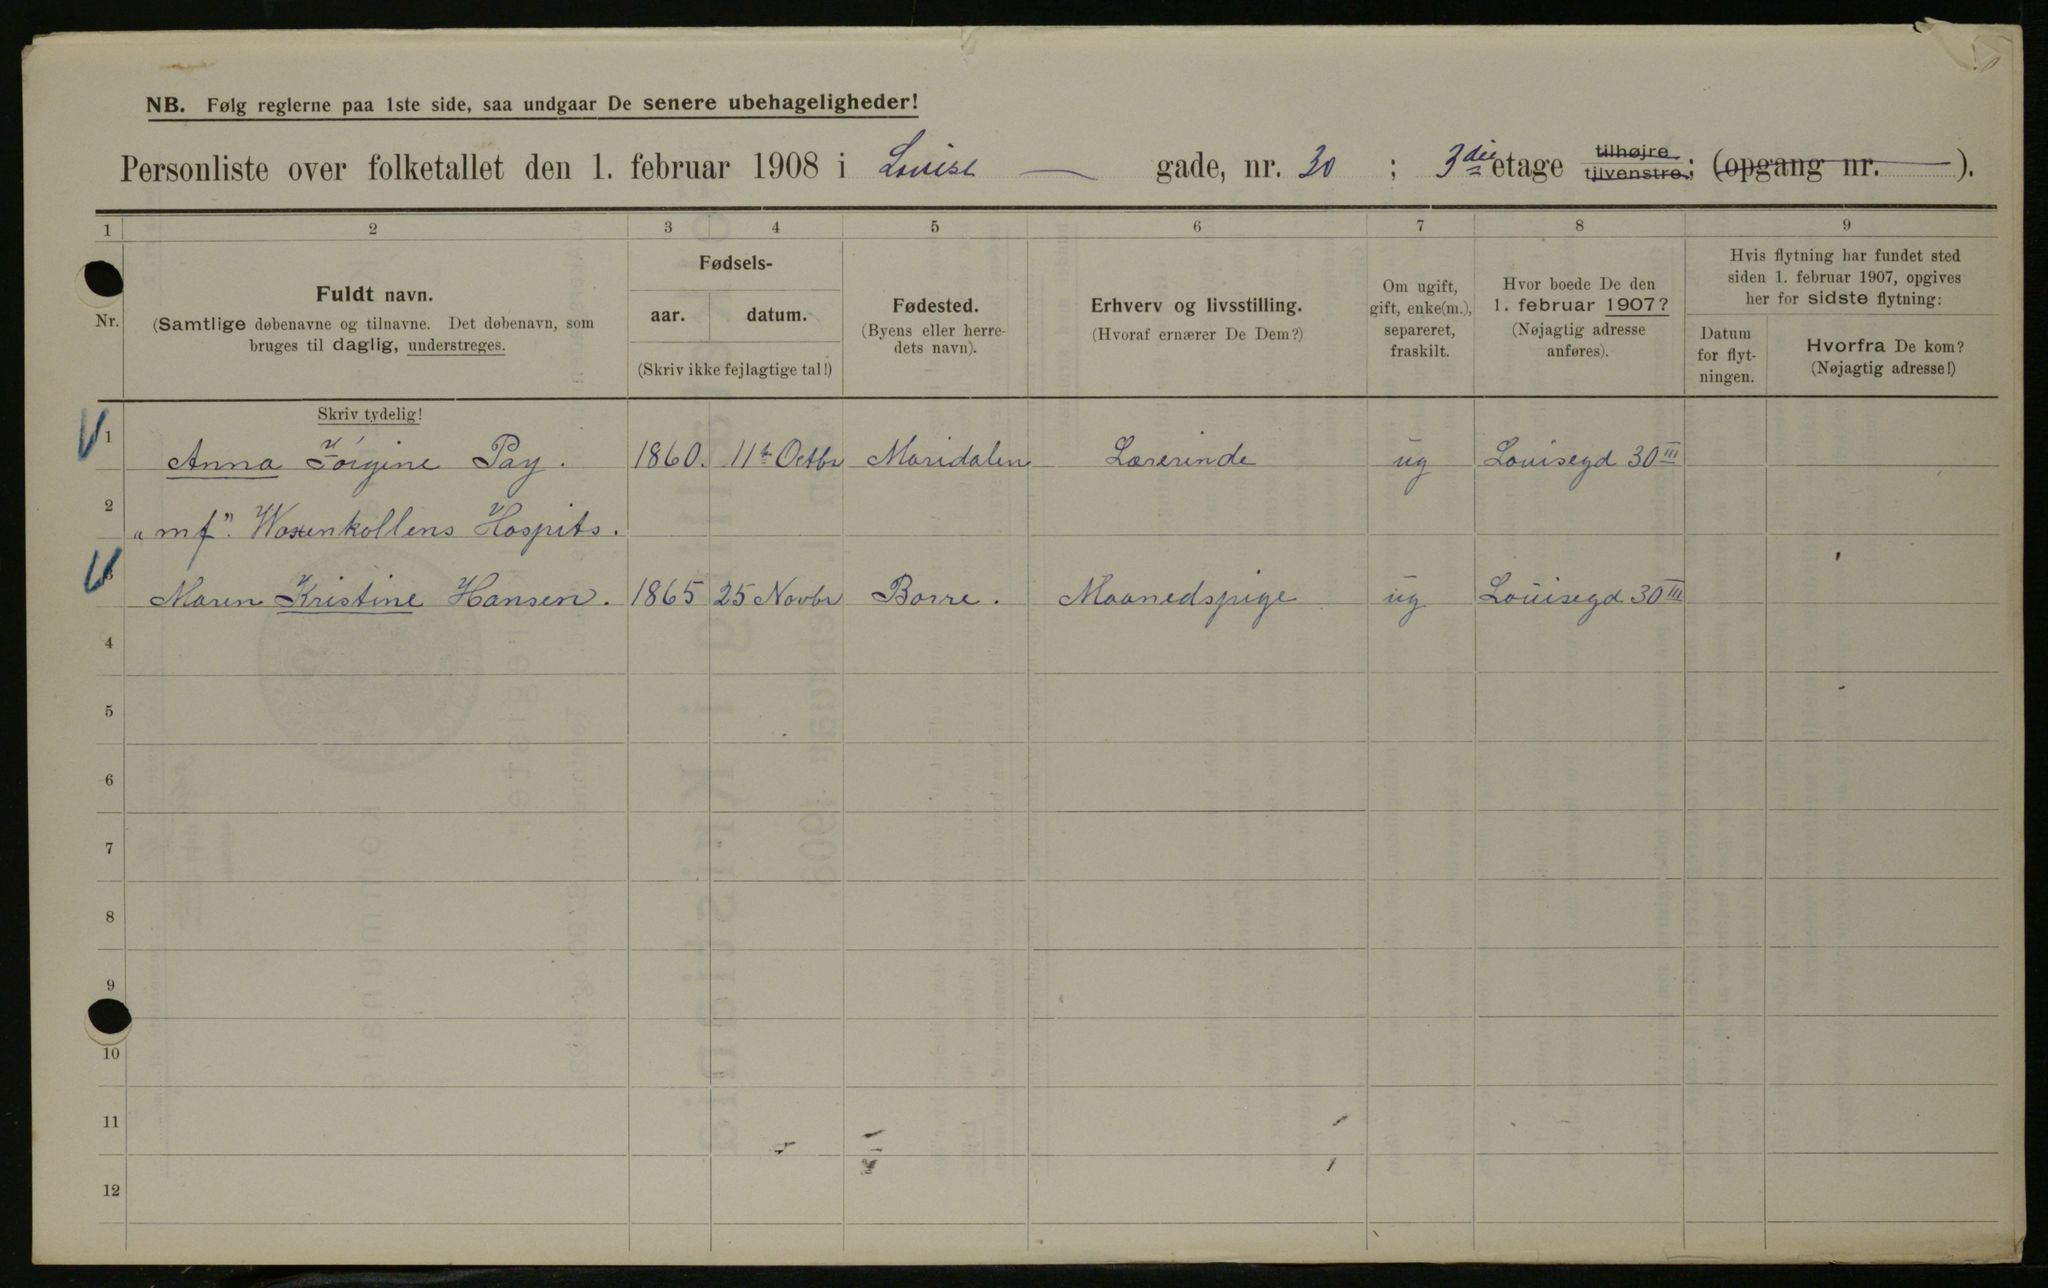 NB. Følg reglerne paa 1ste side, saa undgaar De senere ubehageligheder!
Personliste over folketallet den 1. februar 1908 i Louise — gade, nr. 30 ; 3die etage tilhøjre tilvenstre; (opgang nr. ).
1 2 3 4 5 6 7 8 9
Nr.
Fuldt navn.
(Samtlige døbenavne og tilnavne. Det døbenavn, som
bruges til daglig, understreges.
Fødsels-
aar. datum.
(Skriv ikke fejlagtige tal!)
Fødested.
(Byens eller herre-
dets navn).
Erhverv og livsstilling.
(Hvoraf ernærer De Dem?)
Om ugift,
gift, enke(m.),
separeret,
fraskilt.
Hvor boede De den
1. februar 1907?
(Nøjagtig adresse
anføres).
Hvis flytning har fundet sted
siden 1. februar 1907, opgives
her for sidste flytning:
Datum
for flyt-
ningen.
Hvorfra De kom?
(Nøjagtig adresse!)
Skriv tydelig!
1 Anna Jörgine Pay. 1860. 11te Octbr Maridalen Lærerinde ug Louisegd 30 III
2 "mf". Woxenkollens Hospits.
3 Maren Kristine Hansen. 1865 25 Novbr Borre. Maanedspige ug Louisegd 30 III
4
5
6
7
8
9
10
11
12